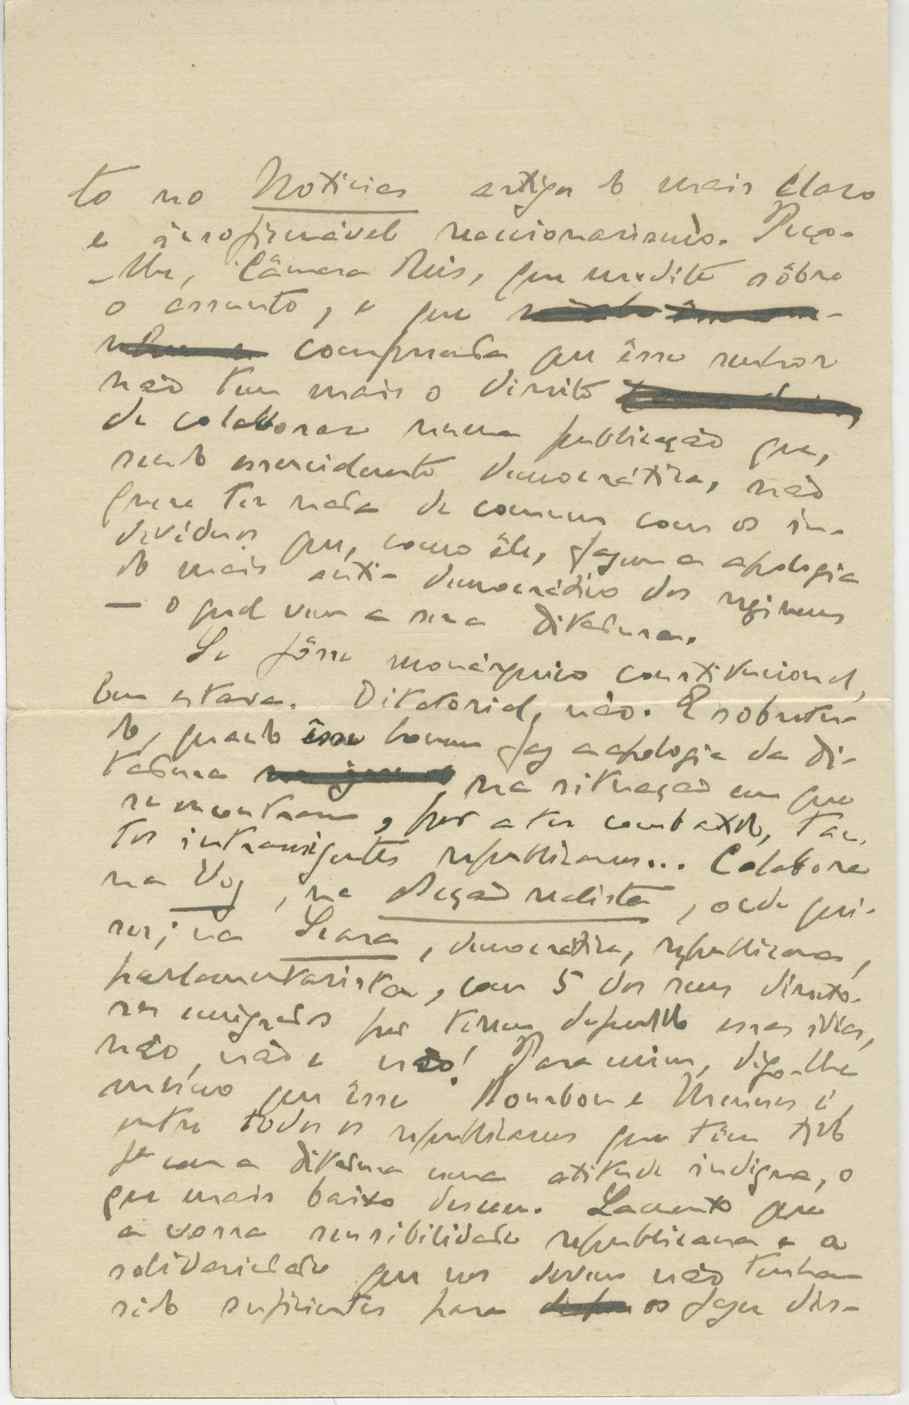 to no Noticias artigos do mais claro
e inrofismável reaccionarismo. Peço-
-lhe, Câmara Reis, que medite sôbre
o assunto, e que
compreenda que êsse senhor
não tem mais o direito
de colaborar numa publicação que,
sendo essencialmente democrática, não
quere ter nada de comum com os in-
divíduos que, como êle, fazem a apologia
do mais anti-democrático dos regimens
— o qual vem a ser a Ditadura.
Se fôsse monárquico constitucional,
bem estava. Ditatorial, não. E sobretu-
do, quando êsse homem faz a apologia da Di-
tadura, na situação em que
se encontram, por a ter combatido, tan-
tos intransigentes republicanos... Colabore
na Voz, na Acção realista, onde qui-
ser; na Seara, democrática, republicana,
parlamentarista, com 5 dos seus directo-
res emigrados por terem defendido essas idéas,
não, não e não! Para mim, digo-lhe
mesmo que êsse Bourbon e Meneses é,
entre todos os republicanos que têm tido
para com a Ditadura uma atitude indigna, o
que mais baixo desceu. Lamento que
a vossa sensibilidade republicana e a
solidariedade que nos devem não tenham
sido suficientes para os fazer dis-